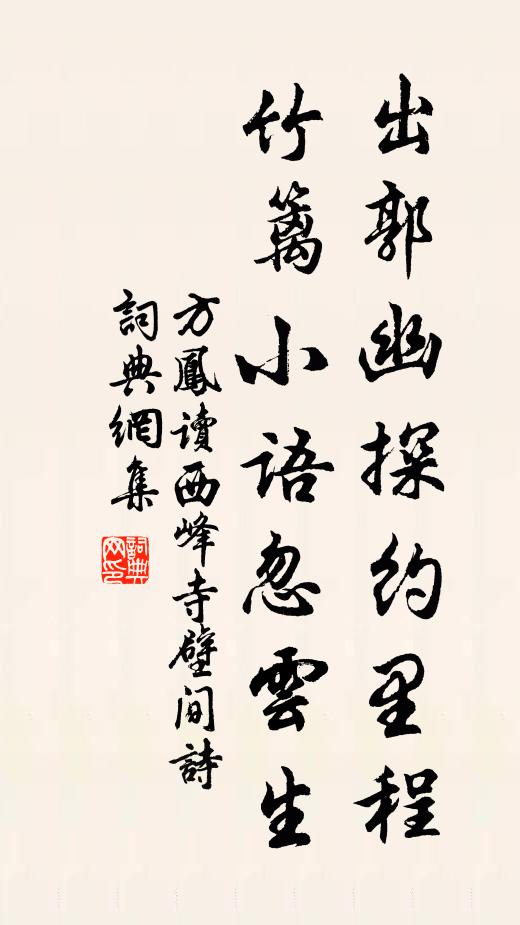 出郭幽探約里程
竹篱小語忽雲生
方鳳讀西峰寺壁間詩
詞典網集
詞典网印